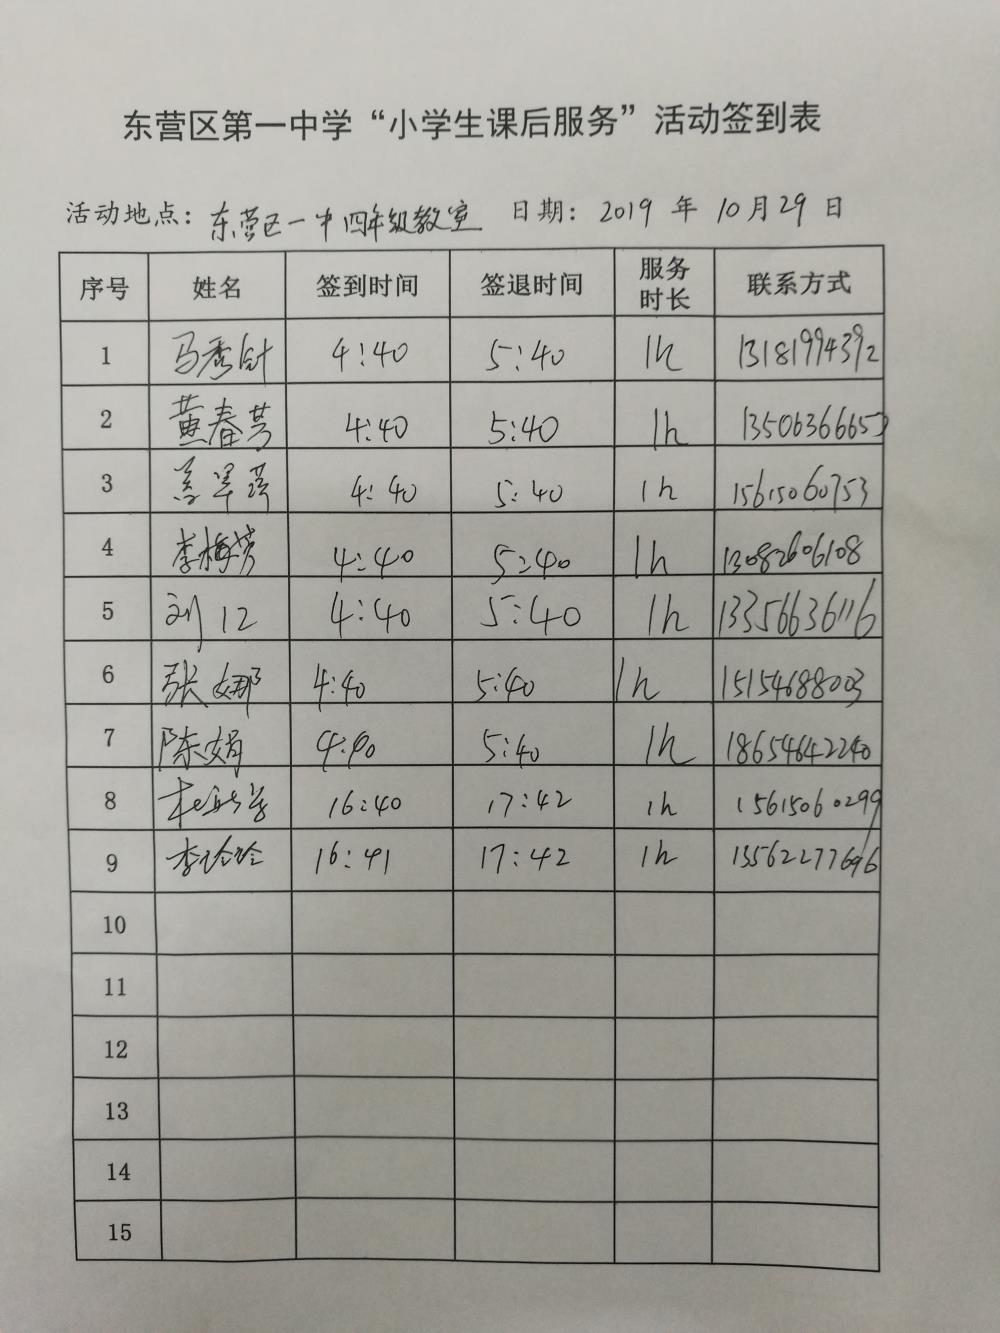 东营区第一中学“小学生课后服务”活动签到表
活动地点：东营区一中四年级教室 日期：2019 年 10 月 29 日
序号 姓名 签到时间 签退时间 服务时长 联系方式
1 马秀针 4:40 5:40 1h 13181994392
2 黄春芳 4:40 5:40 1h 13506366653
3 4:40 5:40 1h 15615060753
4 李梅芳 4:40 5:40 1h 13082606108
5 刘 4:40 5:40 1h 13356636116
6 张娜 4:40 5:40 1h 15154688003
7 陈娟 4:40 5:40 1h 18654642240
8 杜 16:40 17:42 1h 15615060299
9 李玲玲 16:41 17:42 1h 13562277696
10
11
12
13
14
15